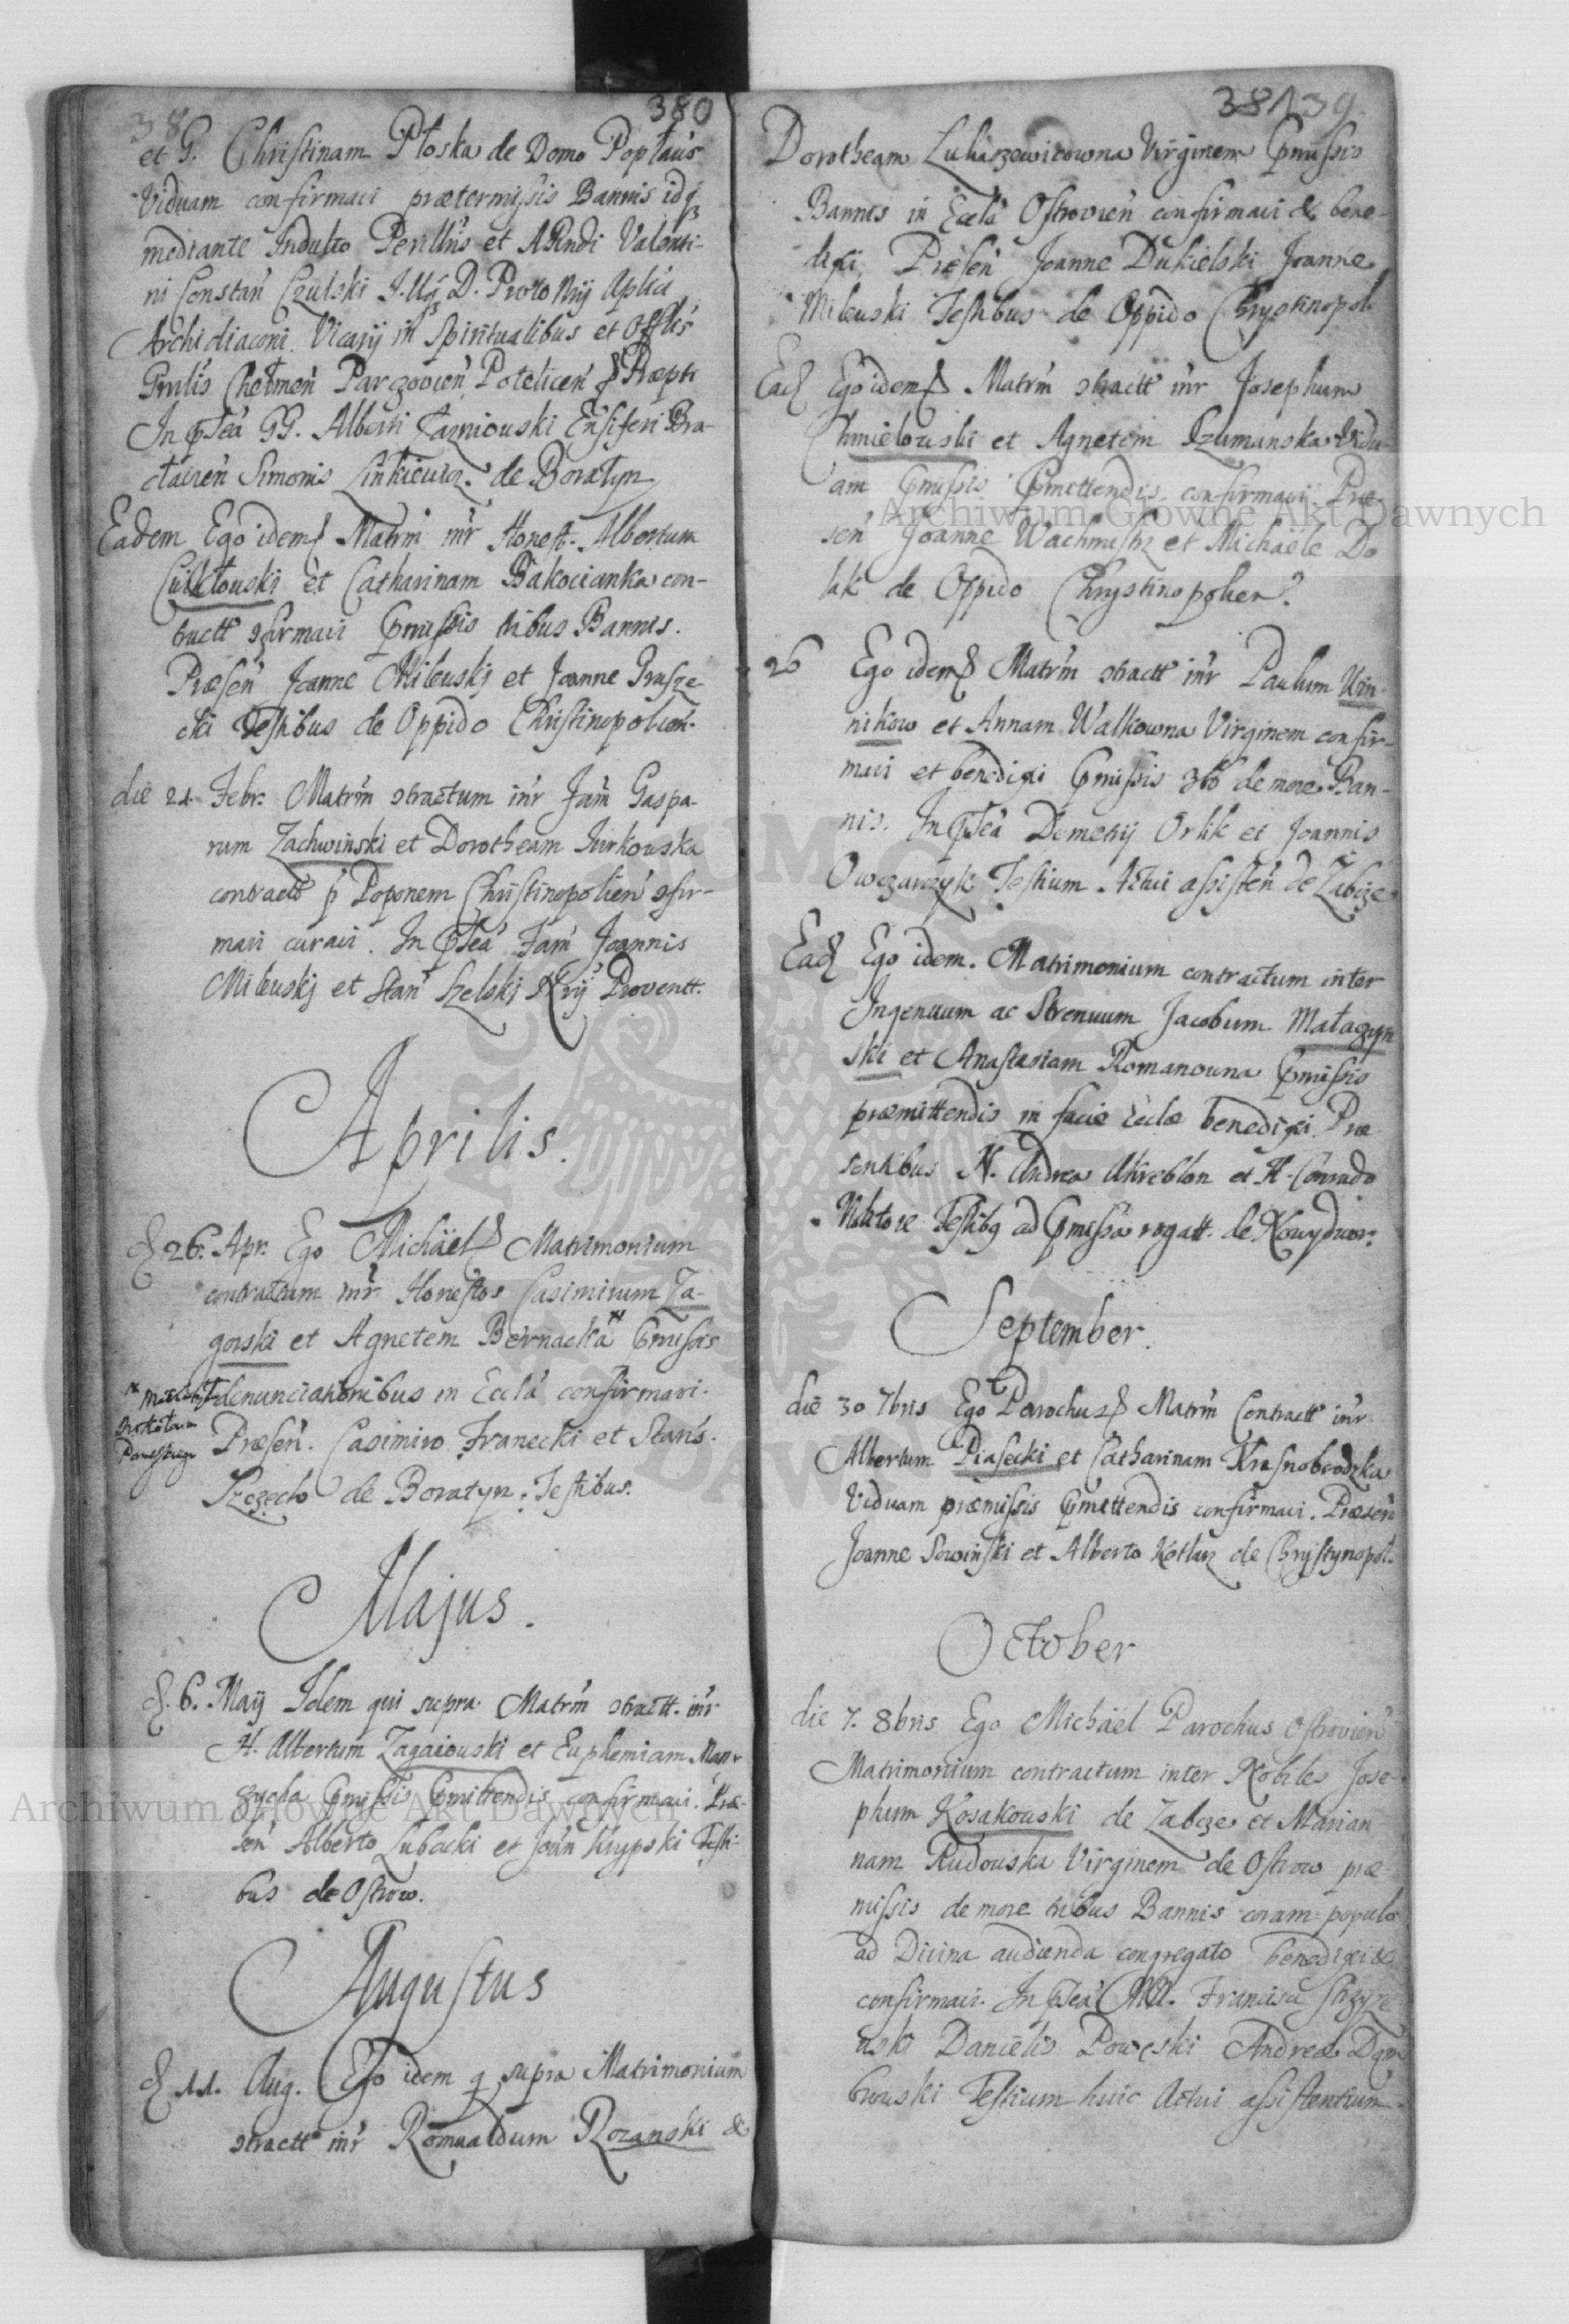 38 380
et G. Christinam Płoska de Domo Poplaus
Viduam confirmavi prætermissis Bannis idq3
mediante Indulto Perillris et ARndi Valenti-
ni Constań Czulski I.U. D. Proto Nrij Aplici
Archidiaconi Vicarij in Spiritualibus et Offlis
Grnlis Chełmeń Parczovień, Poteliceń Præpti
In Pseã GG. Alberti Czarniouski Ensiferi Bra-
claireń Simonis Linkieuicz de Boratyn
Eadem Ego idem Matrm inr Honest. Albertum
et Catharinam Bakocianka con-
tractt 9firmavi Pmissis tribus Bannis.
Præseń Joanne Mileuskj et Joanne Grusze-
cki Testibus de Oppido Christinopolień.
die 21 Febr. Matrm 9tractum inr Fam Gaspa-
rum Zachwiński et Dorotheam Jurkouska
contractt p Poponem Christinopolień 9fir-
mavi curavi. In Pseã Fam Joannis
Mileuskj et Stan Szelskj Nrij Proventt.
Aprilis.
d 26. Apr. Ego Michäel Matrimonium
contractum inr Honestos Casimirum Za-
gorski et Agnetem Bernacka Pmissis
denunciationibus in Eclã confirmavi.
Præseń. Casimiro Franecki et Stans.
Szczecho de Boratyn. Testibus.
Majus.
d. 6. Maij Idem qui supra Matrm 9tractt. inr
H. Albertum Zagaiouski et Euphemiam Man-
zycha Pmissis Pmittendis confirmavi. Præ-
seń Alberto Lubecki et Joan Krypski Testi-
bus de Ostrow.
Augustus
d 11. Aug. Ego idem q supra Matrimonium
9tractt inr Romualdum Rozanski &
381 39
Dorotheam Lukaszewicowna Virginem Pmissis
Bannis in Eclã Ostrovień confirmavi & bene-
dixi, Præseń Joanne Dukielski Joanne
Mileuski Testibus de Oppido Chrystinopol
Ead Ego idem Matrm 9tractt inr Josephum
Chmielouski et Agnetem Szumanska Vidu-
am Pmissis Pmittendis confirmavi Præ-
seń Joanne Wachmistrz et Michaële Do
lik de Oppido Chrystinopolien.
26 Ego idem Matrm 9tractt inr Paulum Win-
nikow et Annam Walkowna Virginem confir-
mavi et benedixi Pmissis 3bs de more Ban-
nis. In Pseã Demetrij Orlik et Joannis
Owczarczyk Testium Actui assisteń de Zabcze
Ead Ego idem. Matrimonium contractum inter
Ingenuum ac Strenuum Jacobum Matazyn
ski et Anastasiam Romanouna Pmissis
præmittendis in facie Eclæ benedixi Præ
sentibus N. Andrea et H. Conrado
Testibq ad Pmissa rogatt. de Nowydwor.
September.
die 30 7bris Ego Parochus Matrm Contractt inr
Albertum Piasecki et Catharinam Krasnobrodzka
Viduam præmissis Pmittendis confirmavi. Præseń
Joanne Sowiński et Alberto Kotlarz de Chrystynopol.
October
die 7. 8bris Ego Michäel Parochus Ostrovień
Matrimonium contractum inter Nobiles Jose-
phum Kosakouski de Zabcze et Marian-
nam Rudouska Virginem de Ostrow præ-
missis de more tribus Bannis coram populo
ad Divina audienda congregato benedixi &
confirmavi. In Pseã MM. Francisci Strzyze
uski Daniëlis Poweski Andreæ Dąm
brouski Testium huic Actui assistentium.
Archiwum Główne Akt Dawnych
Archiwum Główne Akt Dawnych